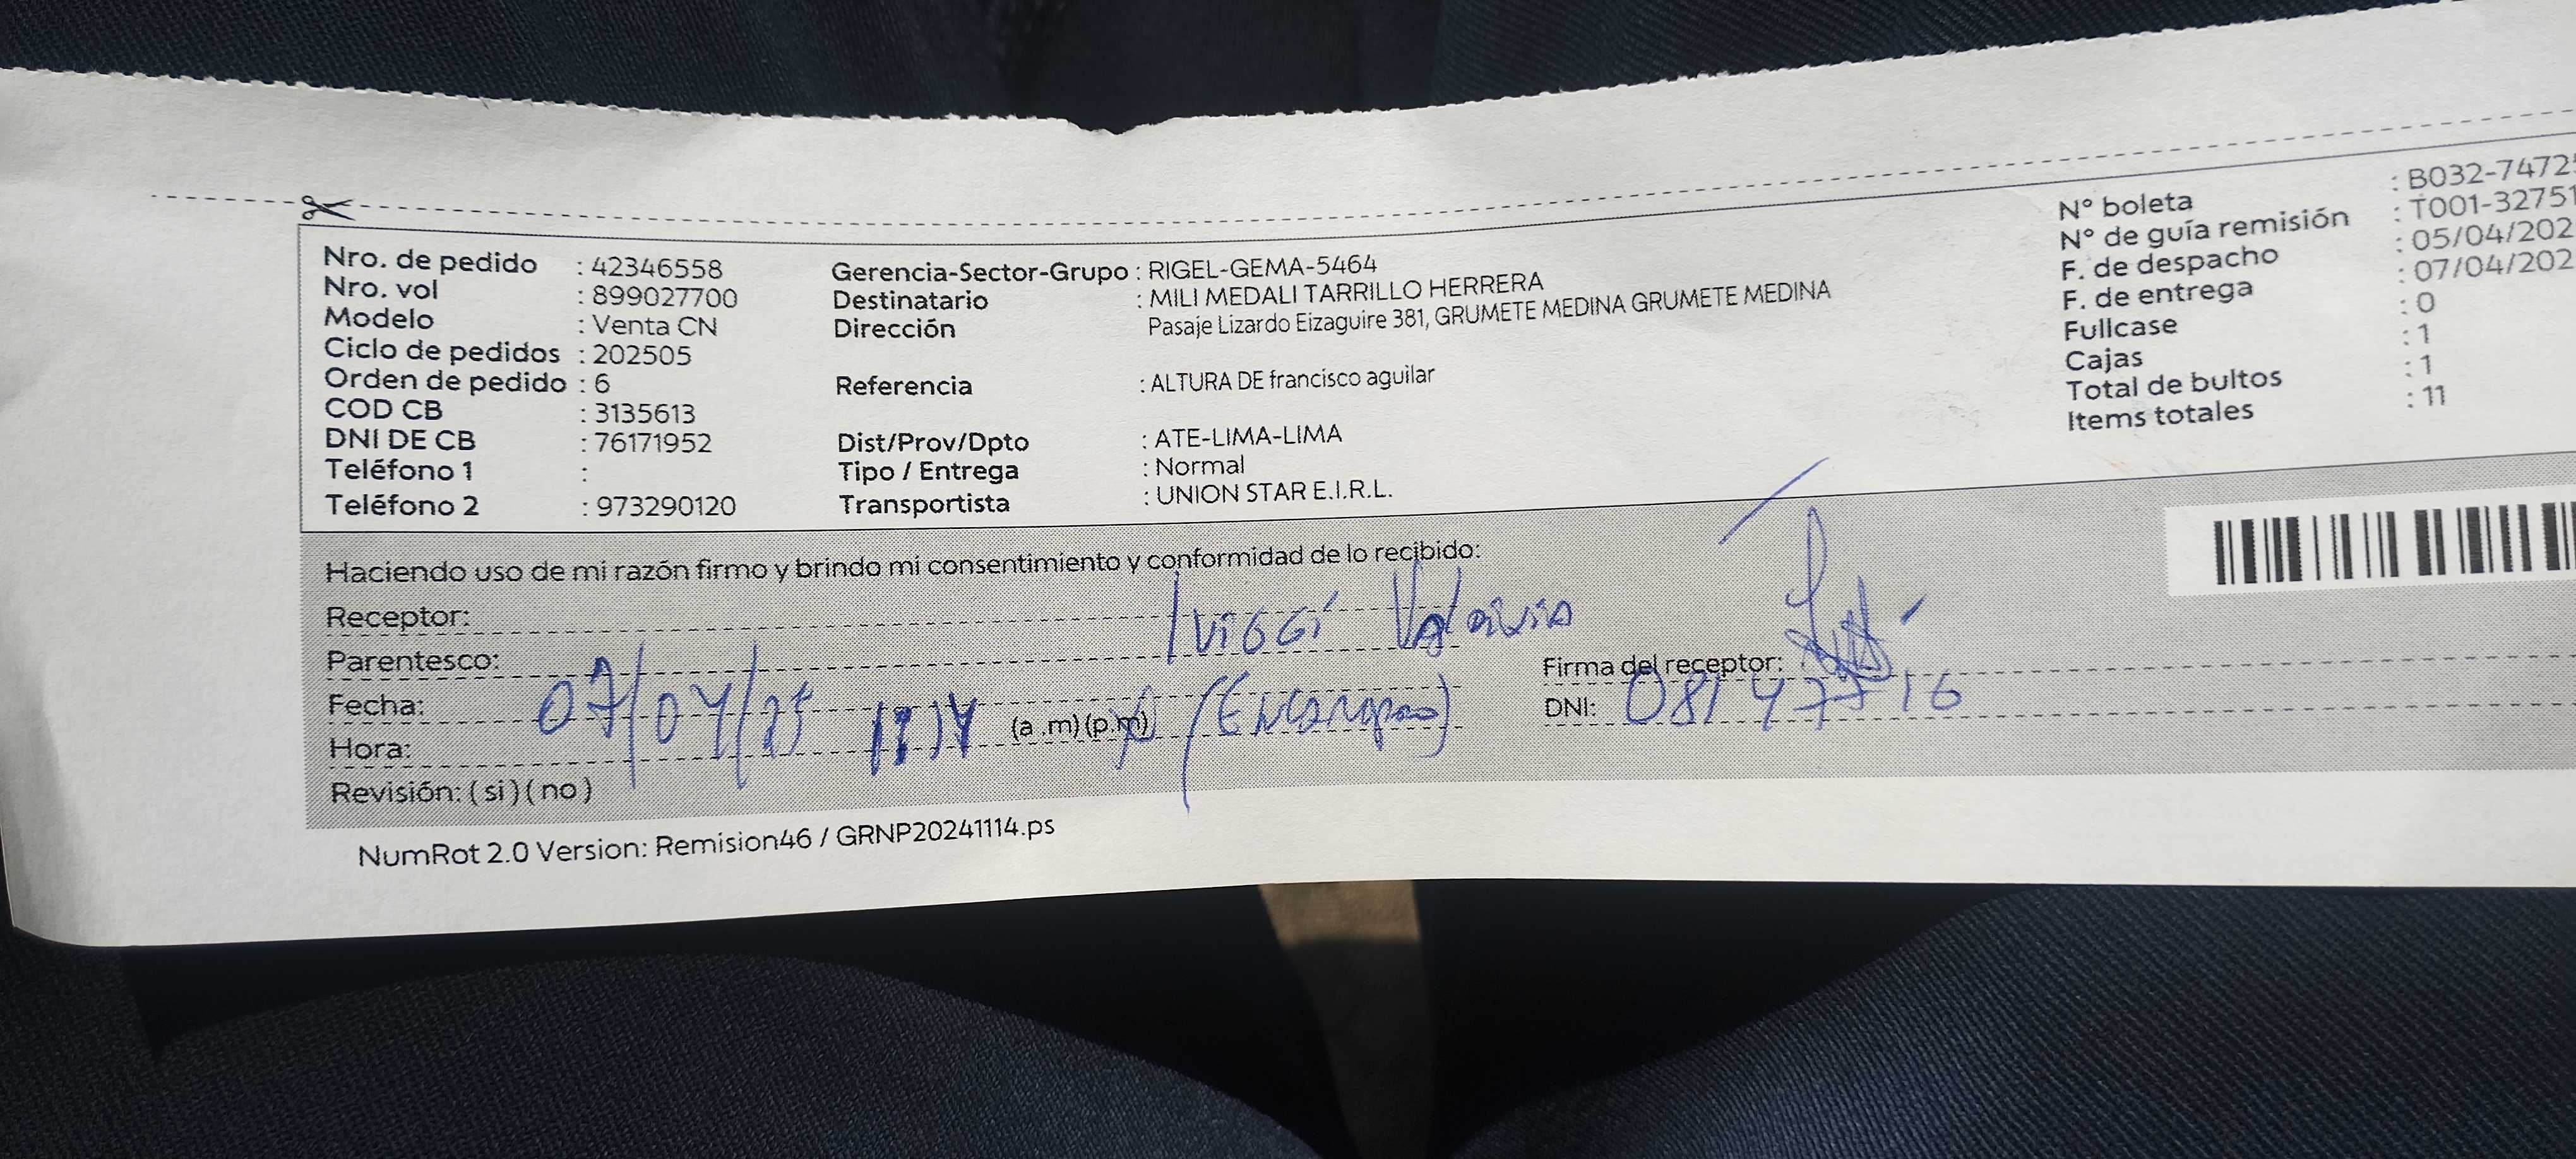 Nro. de pedido : 42346558
Nro. vol : 899027700
Modelo : Venta CN
Ciclo de pedidos : 202505
Orden de pedido : 6
COD CB : 3135613
DNI DE CB : 76171952
Teléfono 1 :
Teléfono 2 : 973290120
Gerencia-Sector-Grupo : RIGEL-GEMA-5464
Destinatario : MILI MEDALI TARRILLO HERRERA
Dirección Pasaje Lizardo Eizaguire 381, GRUMETE MEDINA GRUMETE MEDINA
Referencia : ALTURA DE francisco aguilar
Dist/Prov/Dpto : ATE-LIMA-LIMA
Tipo / Entrega : Normal
Transportista : UNION STAR E.I.R.L.
N° boleta : B032-7472
N° de guía remisión : T001-32751
F. de despacho : 05/04/202
F. de entrega : 07/04/202
Fullcase : 0
Cajas : 1
Total de bultos : 1
Items totales : 11
Haciendo uso de mi razón firmo y brindo mi consentimiento y conformidad de lo recibido:
Receptor: Valdivia
Parentesco:
Fecha: 07/04/25
Hora: (a .m) (p.m)
Revisión: ( si ) ( no )
Firma del receptor:
DNI: 08147716
NumRot 2.0 Version: Remision46 / GRNP20241114.ps